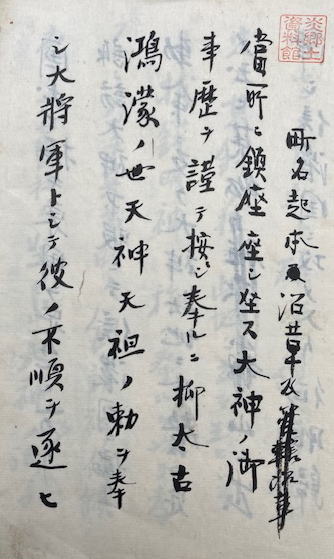 郷土
資料館
町名起本沿革及
當町ニ鎮座座シ坐ス大神ノ御
事歴ヲ謹テ按シ奉ルニ抑太古
鴻濛ノ世天神天祖ノ勅ヲ奉
シ大將軍トシテ彼ノ不順ヲ逐ヒ